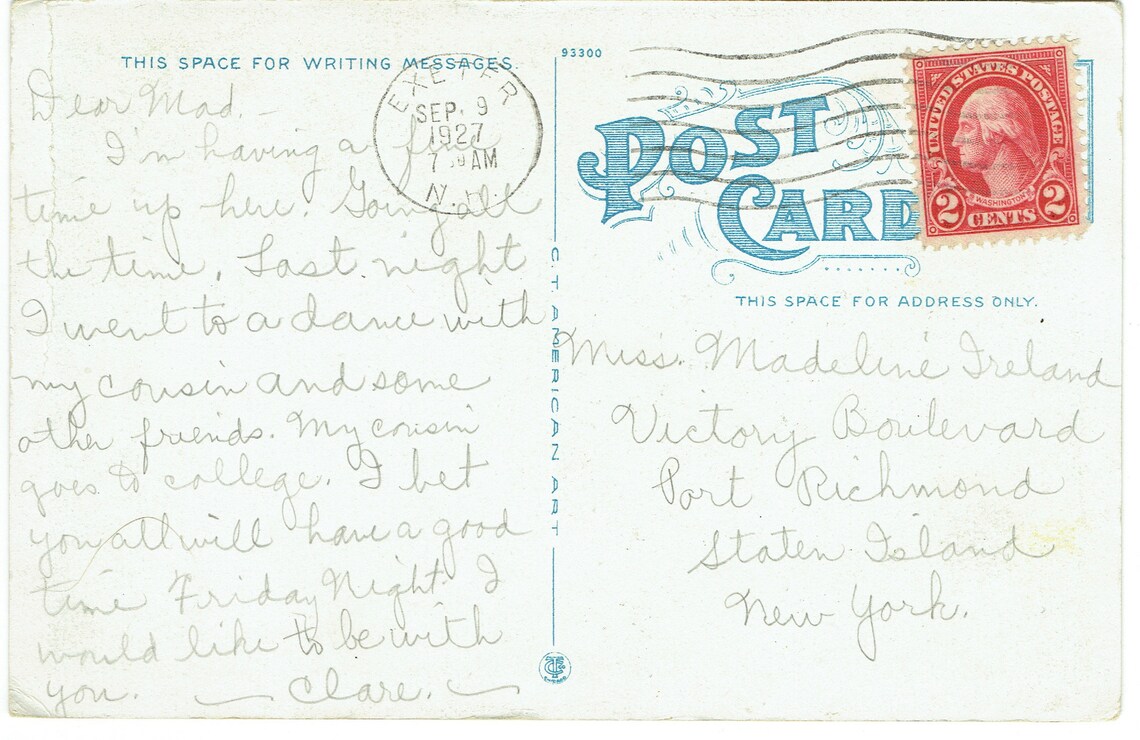 THIS SPACE FOR WRITING MESSAGES.
Dear Mad. —
I'm having a fine
time up here. Going all
the time. Last night
I went to a dance with
my cousin and some
other friends. My cousin
goes to college. I bet
you all will have a good
time Friday Night I
would like to be with
you. — Clare. —
EXETER
SEP. 9
1927
7 AM
N.H.
C.T. AMERICAN ART
93300
POST
CARD
UNITED STATES POSTAGE
WASHINGTON
2 CENTS 2
THIS SPACE FOR ADDRESS ONLY.
Miss. Madeline Ireland
Victory Boulevard
Port Richmond
Staten Island
New York.